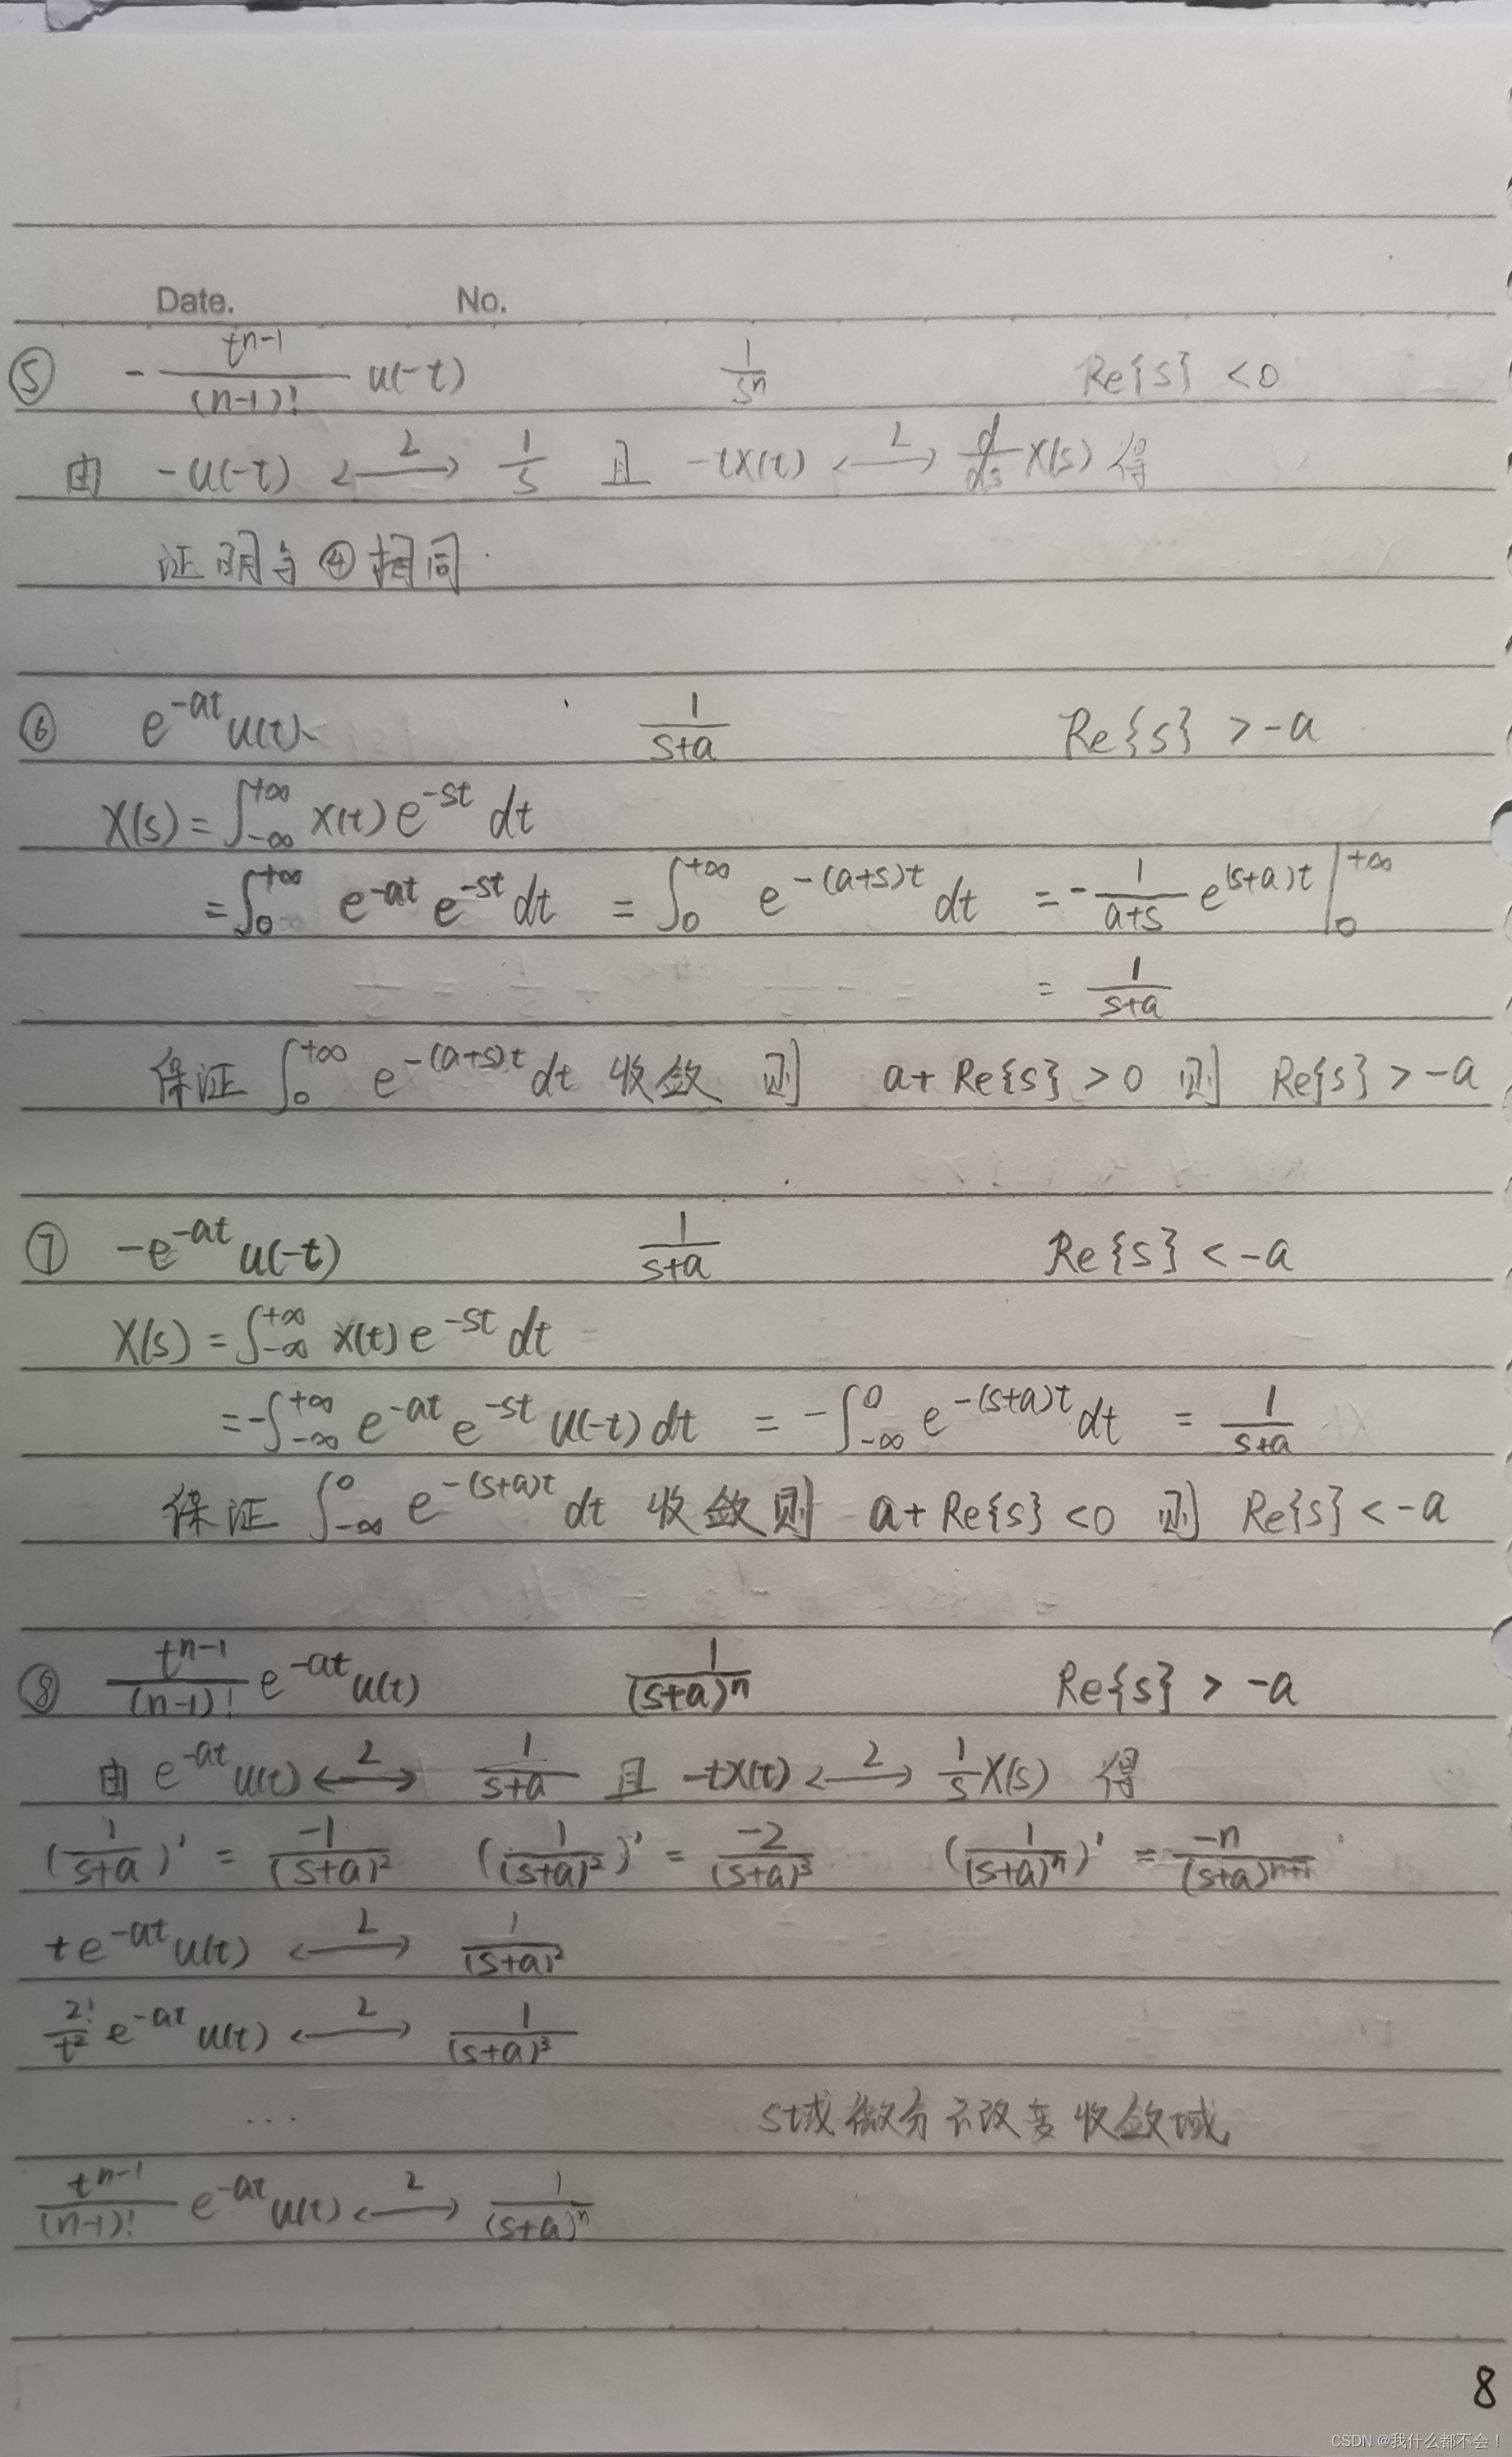 Date. No.
⑤ -\frac{t^{n-1}}{(n-1)!} u(-t) \frac{1}{s^n} Re{s} <0
由 -u(-t) \xleftrightarrow{L} \frac{1}{s} 且 -tx(t) \xleftrightarrow{L} \frac{d}{ds}X(s) 得
证明与④相同.
⑥ e^{-at}u(t) \frac{1}{s+a} Re{s} >-a
X(s) = \int_{-∞}^{+∞} x(t)e^{-st} dt
= \int_0^{+∞} e^{-at} e^{-st} dt = \int_0^{+∞} e^{-(a+s)t} dt = -\frac{1}{a+s} e^{(s+a)t} |_0^{+∞}
= \frac{1}{s+a}
保证 \int_0^{+∞} e^{-(a+s)t} dt 收敛 则 a+Re{s}>0 则 Re{s}>-a
⑦ -e^{-at} u(-t) \frac{1}{s+a} Re{s} < -a
X(s) = \int_{-∞}^{+∞} x(t)e^{-st} dt
= -\int_{-∞}^{+∞} e^{-at} e^{-st} u(-t) dt = -\int_{-∞}^0 e^{-(s+a)t} dt = \frac{1}{s+a}
保证 \int_{-∞}^0 e^{-(s+a)t} dt 收敛则 a+Re{s}<0 则 Re{s}<-a
⑧ \frac{t^{n-1}}{(n-1)!} e^{-at}u(t) \frac{1}{(s+a)^n} Re{s} > -a
由 e^{-at}u(t) \xleftrightarrow{L} \frac{1}{s+a} 且 -tx(t) \xleftrightarrow{L} \frac{1}{s}X(s) 得
(\frac{1}{s+a})' = \frac{-1}{(s+a)^2} (\frac{1}{(s+a)^2})' = \frac{-2}{(s+a)^3} (\frac{1}{(s+a)^n})' = \frac{-n}{(s+a)^{n+1}}
te^{-at}u(t) \xleftrightarrow{L} \frac{1}{(s+a)^2}
\frac{2!}{t^2} e^{-at} u(t) \xleftrightarrow{L} \frac{1}{(s+a)^3}
... s域微分不改变收敛域
\frac{t^{n-1}}{(n-1)!} e^{-at}u(t) \xleftrightarrow{L} \frac{1}{(s+a)^n}
8
CSDN @我什么都不会！